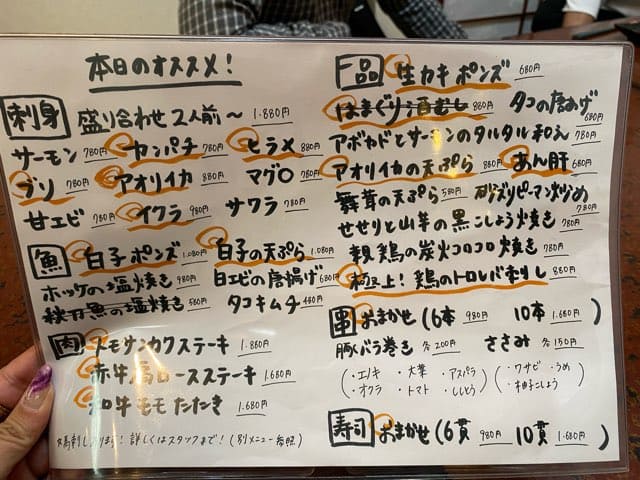 本日のオススメ!
刺身 盛り合わせ2人前〜 1.880円
サーモン 780円 カンパチ 780円 ヒラメ 880円
ブリ 780円 アオリイカ 880円 マグロ 780円
甘エビ 780円 イクラ 980円 サワラ 780円
魚 白子ポンズ 1.080円 白子の天ぷら 1.080円
ホッケの塩焼き 980円 白エビの唐揚げ 680円
秋刀魚の塩焼き 580円 タコキムチ 480円
肉 トモサンカクステーキ 1.880円
赤牛肩ロースステーキ 1.680円
和牛モモたたき 1.680円
馬刺しあります!詳しくはスタッフまで!(別メニュー参照)
一品 生カキポンズ 680円
はまぐり酒むし 880円 タコの唐あげ 680円
アボカドとサーモンのタルタル和え 780円
アオリイカの天ぷら 880円 あん肝 680円
舞茸の天ぷら 580円 砂ズリピーマン炒め 780円
せせりと山芋の黒こしょう焼き 780円
親鶏の炭火コロコロ焼き 780円
極上!鶏のトロレバ刺し 880円
串 おまかせ(6本 980円 10本 1.680円)
豚バラ巻き 各200円 ささみ 各150円
(・エノキ ・大葉 ・アスパラ (・ワサビ ・うめ
・オクラ ・トマト ・ししとう) ・柚子こしょう)
寿司 おまかせ(6貫 980円 10貫 1.680円)